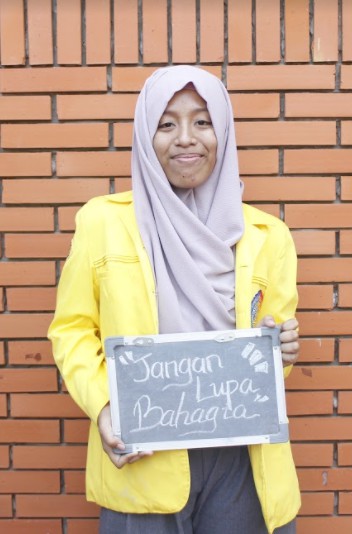 "Jangan
Lupa
Bahagia"